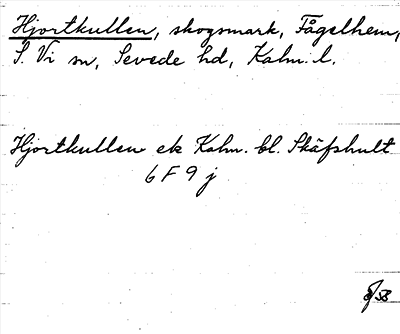 Hjortkullen, skogsmark, Fågelhem,
S. Vi sn, Sevede hd, Kalm. l.
Hjortkullen ek Kalm. bl. Skäfshult
6 F 9 j